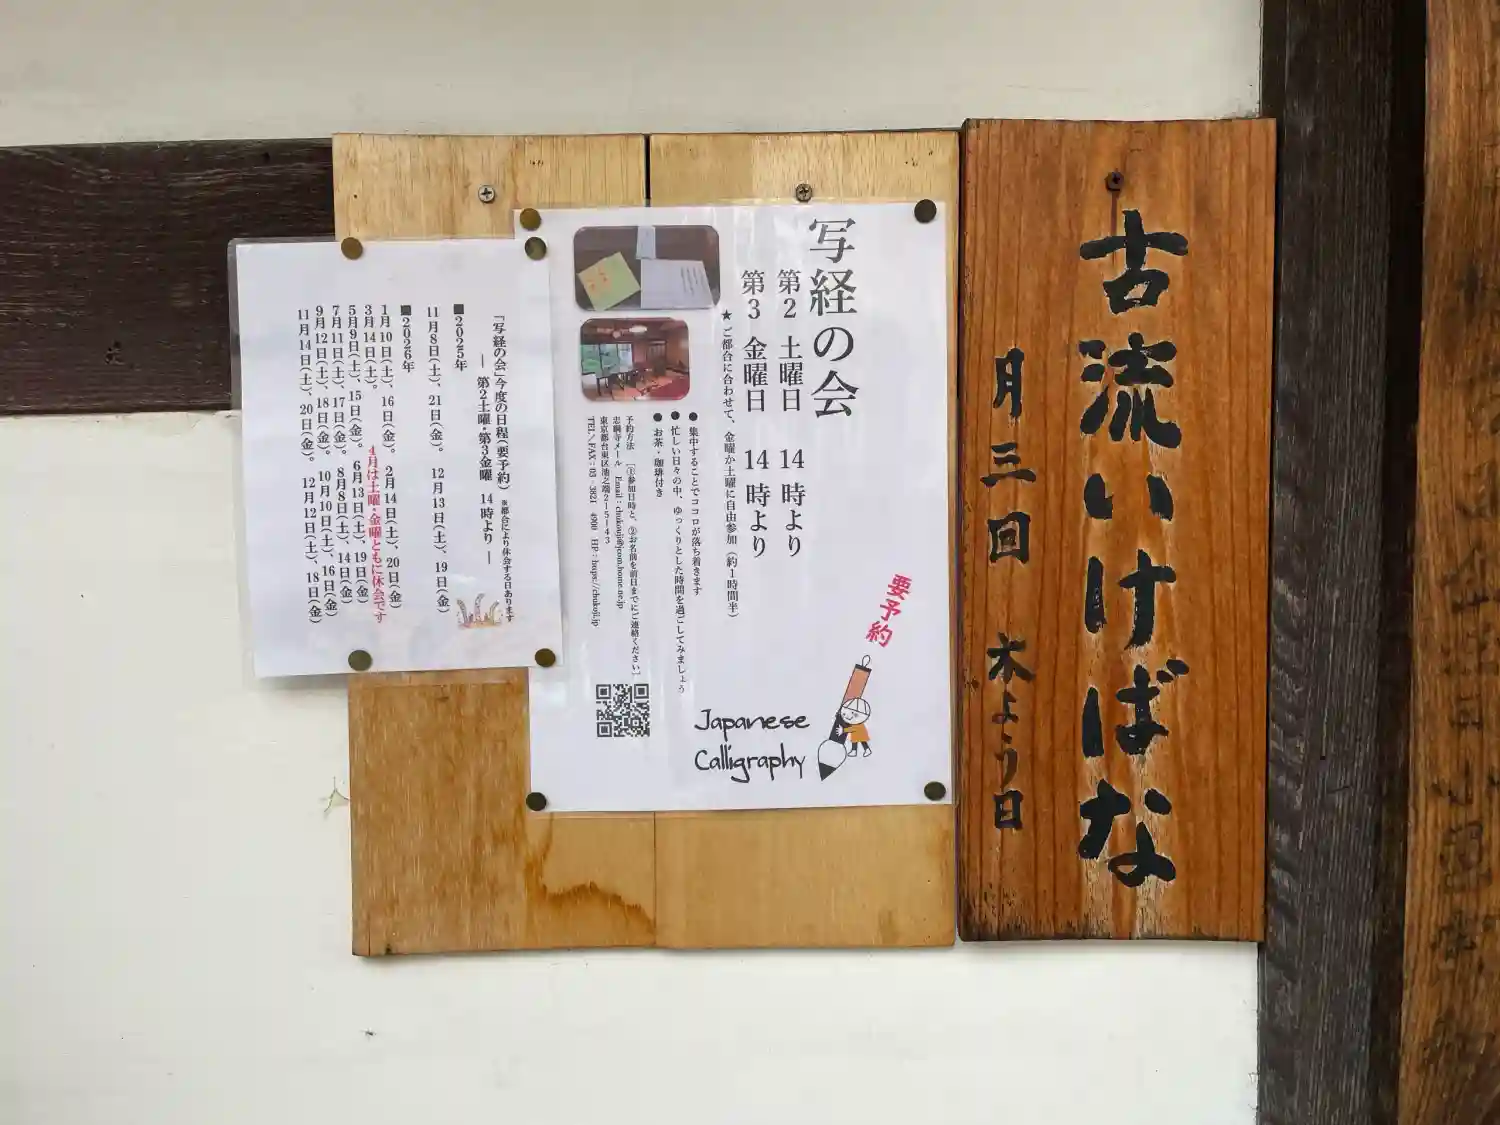 古流いけばな
月三回 木よう日
写経の会
第2 土曜日 14時より
第3 金曜日 14時より
★ご都合に合わせて、金曜か土曜に自由参加(約1時間半)
●集中することでココロが落ち着きます
●忙しい日々の中、ゆっくりとした時間を過ごしてみましょう
●お茶・珈琲付き
予約方法 [①参加日時と、②お名前を前日までにご連絡ください]
東京都台東区池之端2-5-43
TEL/FAX:03-3821
要予約
Japanese
Calligraphy
「写経の会」今度の日程(要予約)※都合により休会する日あります
― 第2土曜・第3金曜 14時より ―
■2025年
11月8日(土)、21日(金)。 12月13日(土)、19日(金)
■2026年
1月10日(土)、16日(金)。 2月14日(土)、20日(金)
3月14日(土)。 4月は土曜・金曜ともに休会です
5月9日(土)、15日(金)。 6月13日(土)、19日(金)
7月11日(土)、17日(金)。 8月8日(土)、14日(金)
9月12日(土)、18日(金)。 10月10日(土)、16日(金)
11月14日(土)、20日(金)。 12月12日(土)、18日(金)